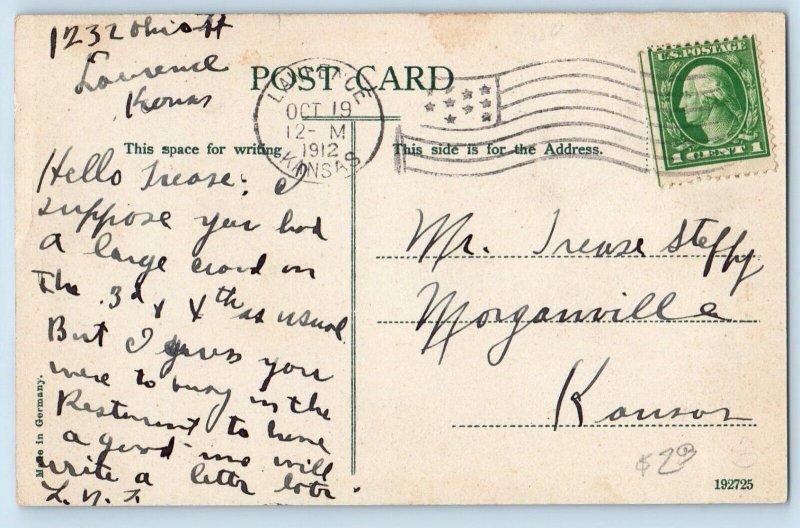 1232 Ohio St
Lawrence
Kansas
POST CARD
LAWRENCE
OCT 19
12- M
1912
KANSAS
U.S. POSTAGE
1 CENT 1
This space for writing.
This side is for the Address.
Hello Trease; I
suppose you had
a large crowd on
The 3d & 4th as usual
But I guess you
were to busy in the
Resturant to have
a good will
write a letter later.
Mr. Trease Steffy
Morganville
Kansas
Made in Germany.
$2
192725